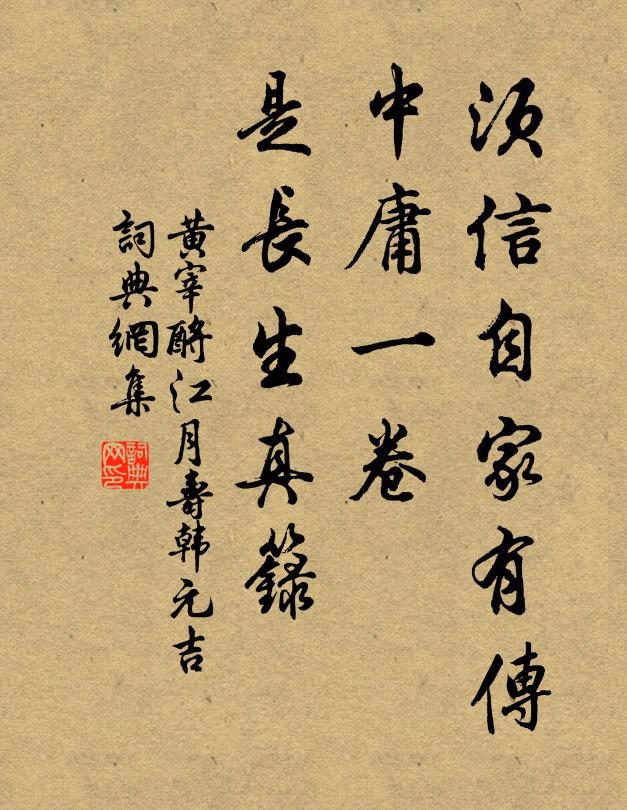 須信自家有傳
中庸一卷
是長生真籙
黃宰酹江月壽韩元吉
詞典網集
詞典网印